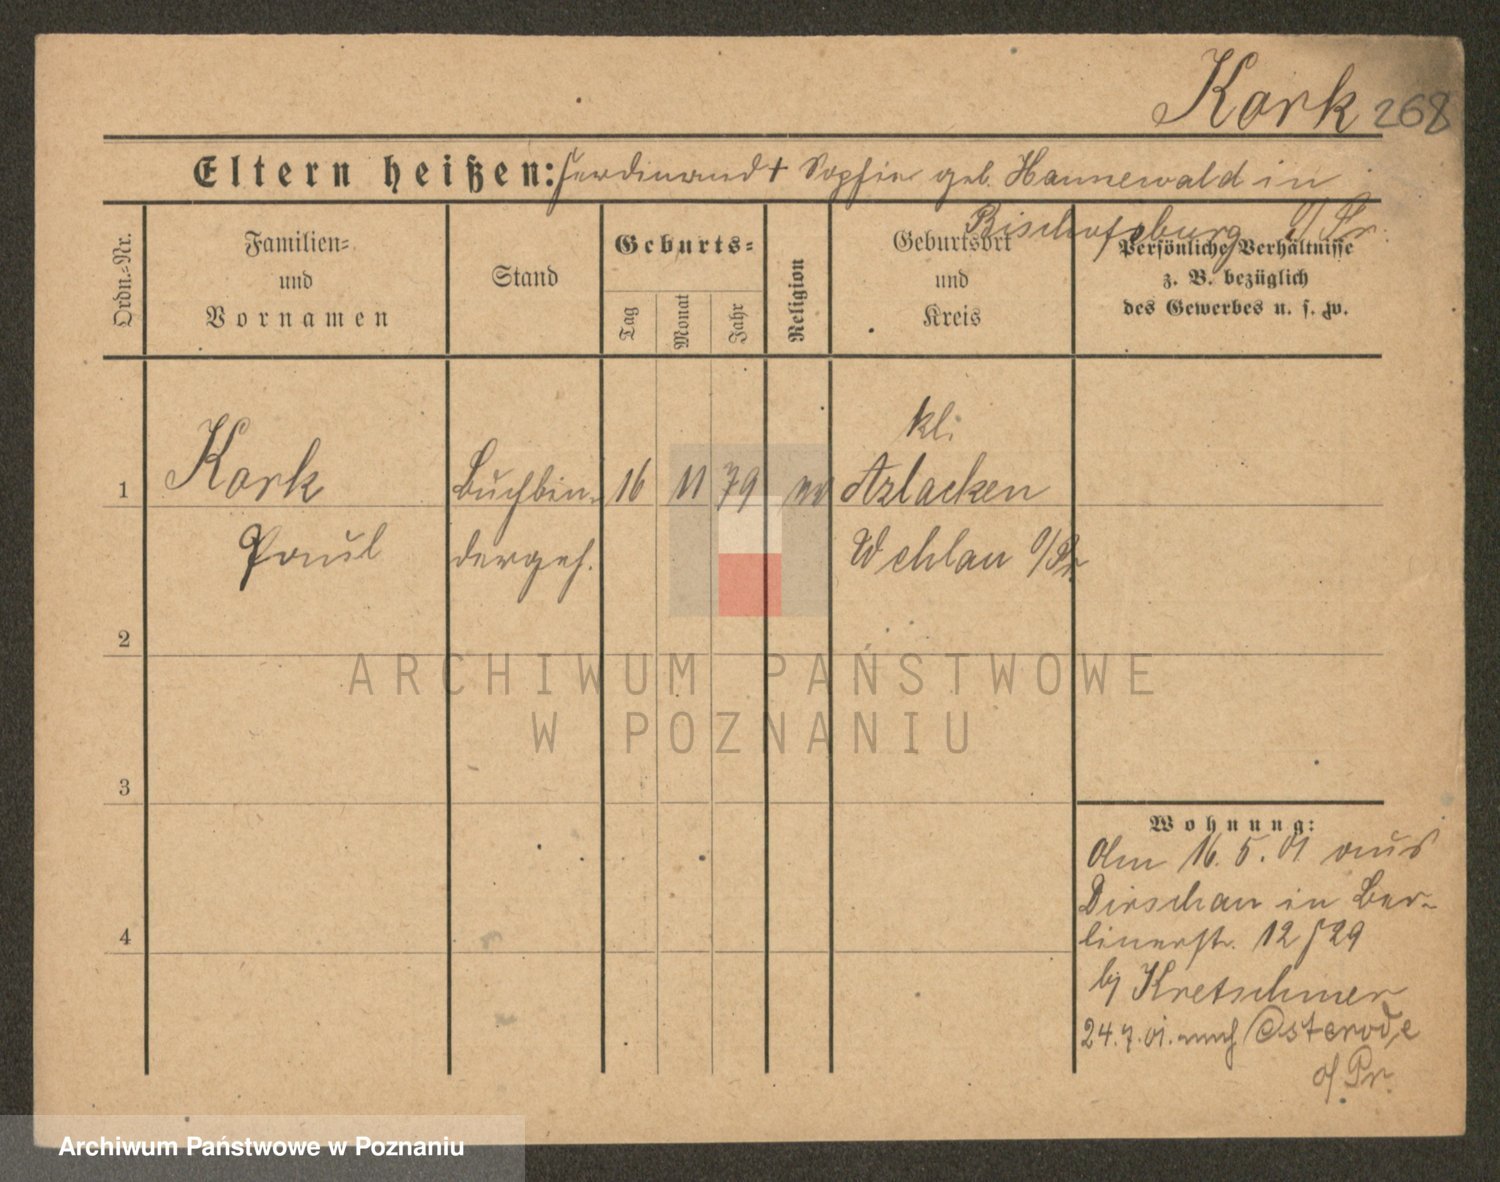 Kork 268
Eltern heißen: Ferdinand + Sophie geb. Hannewald in
Bischofsburg O/Pr.
Ordn.-Nr.
Familien-
und
Vornamen
Stand
Geburts-
Tag
Monat
Jahr
Religion
Geburtsort
und
Kreis
Persönliche Verhältnisse
z. B. bezüglich
des Gewerbes u. s. w.
kl.
1 Kork Buchbin- 16 11 79 ev Azlacken
Paul dergeh. Wehlau O/Pr
2
3
4
Wohnung:
Am 16.5.01 aus
Dirschau in Ber-
linerstr. 12 / 29
by Kretschmer
24.7.01. nach Osterode
o/Pr.
ARCHIWUM PAŃSTWOWE
W POZNANIU
Archiwum Państwowe w Poznaniu